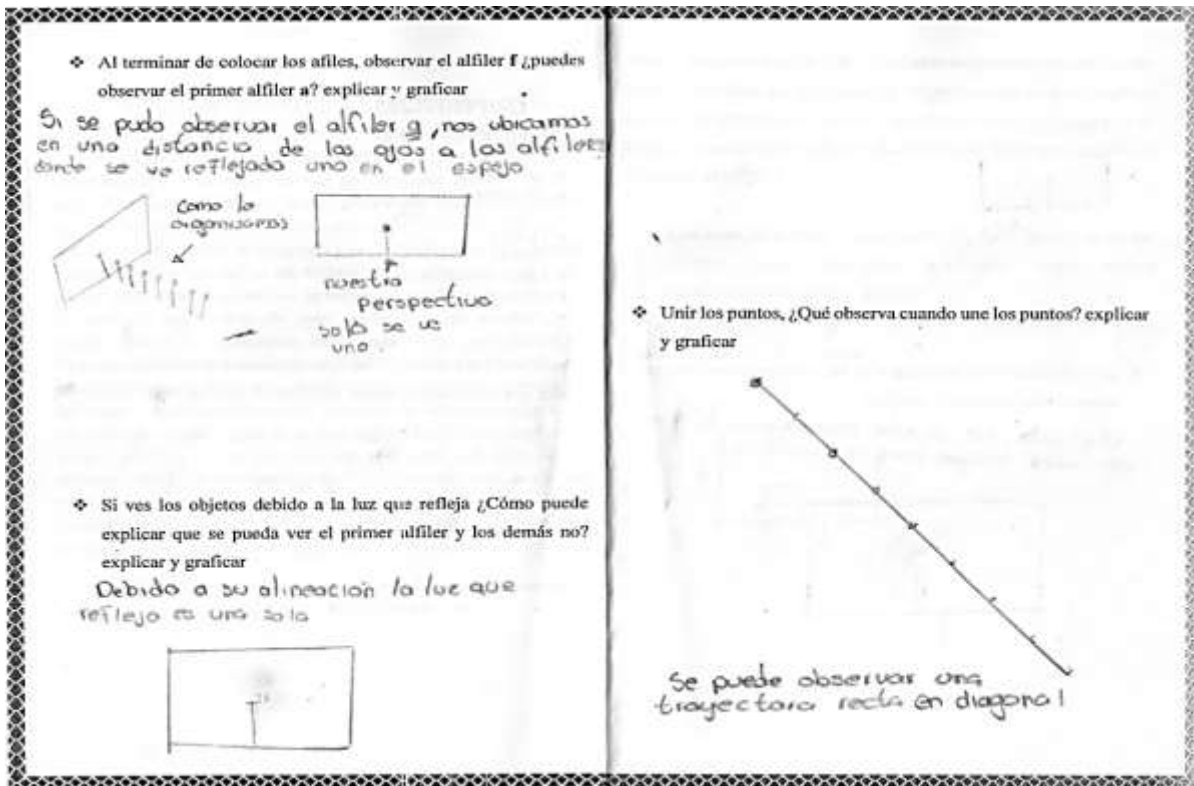 ❖ Al terminar de colocar los afiles, observar el alfiler f ¿puedes
observar el primer alfiler a? explicar y graficar
Si se pudo observar el alfiler a, nos ubicamos
en una distancia de los ojos a los alfileres
donde se ve reflejado uno en el espejo
Como lo
organisamos
nuestra
perspectiva
solo se ve
uno.
❖ Si ves los objetos debido a la luz que refleja ¿Cómo puede
explicar que se pueda ver el primer alfiler y los demás no?
explicar y graficar
Debido a su alineación la luz que
reflejo es una sola
❖ Unir los puntos, ¿Qué observa cuando une los puntos? explicar
y graficar
Se puede observar una
trayectora recta en diagonal